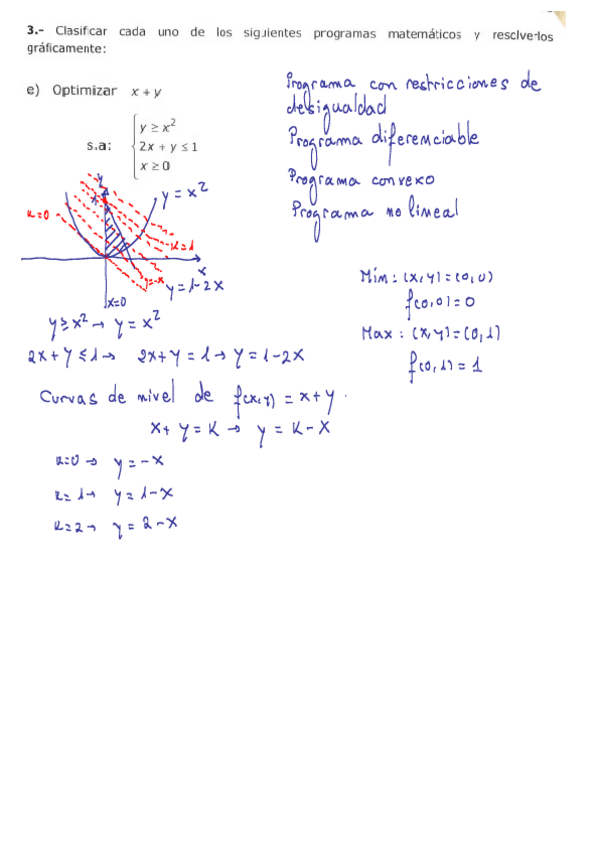 3.- Clasificar cada uno de los siguientes programas matemáticos y resolverlos
gráficamente:
e) Optimizar x + y
s.a: { y ≥ x²
2x + y ≤ 1
x ≥ 0
Programa con restricciones de
desigualdad
Programa diferenciable
Programa convexo
Programa no lineal
y
y = x²
k=0
k=1
y=-x
x
y = 1-2x
x=0
y ≥ x² → y = x²
2x + y ≤ 1 → 2x + y = 1 → y = 1-2x
Mín: (x,y) = (0,0)
f(0,0) = 0
Max: (x,y) = (0,1)
f(0,1) = 1
Curvas de nivel de f(x,y) = x+y.
x + y = k → y = k-x
k=0 → y = -x
k=1 → y = 1-x
k=2 → y = 2-x